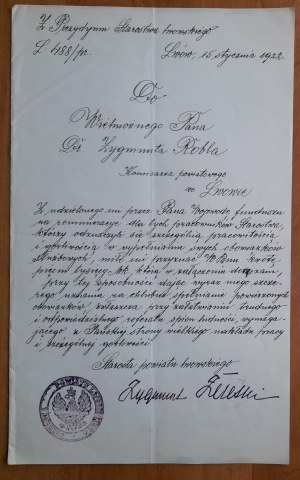 Z Prezydyum Starostwa lwowskiego
L. 488/pr. Lwów, 15 stycznia 1922.
Do
Wielmożnego Pana
Dr Zygmunta Robla
Komisarza powiatowego
we Lwowie
Z udzielonego mi przez Pana Wojewodę funduszu
na remuneracye dla tych pracowników Starostwa,
którzy odznaczyli się szczególną pracowitością
i gorliwością w wypełnianiu swych obowiązków
służbowych, miło mi przyznać WPanu kwotę
pięciu tysięcy Mk, którą w załączeniu doręczam,
przy tej sposobności dając wyraz mego szcze-
rego uznania za chlubne spełnianie powierzonych
obowiązków, zwłaszcza przy załatwianiu trudnego
i odpowiedzialnego referatu spisu ludności, wymaga-
jącego z Pańskiej strony wielkiego nakładu pracy
i szczególnej gorliwości.
Starosta powiatu lwowskiego
Zygmunt